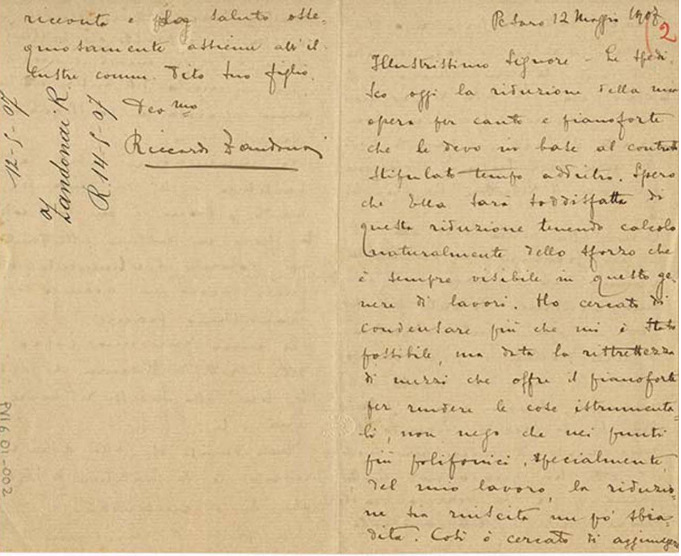 Pesaro 12 Maggio 1907
2
Illustrissimo Signore - Le spedi-
sco oggi la riduzione della mia
opera per canto e pianoforte
che le devo in base al contratto
stipulato tempo addietro. Spero
che Ella sarà soddisfatta di
questa riduzione tenendo calcolo
naturalmente dello sforzo che
è sempre visibile in questo ge-
nere di lavori. Ho cercato di
condensare più che mi è stato
possibile, ma data la ristrettezza
di mezzi che offre il pianoforte
per rendere le cose istrumenta-
li, non nego che nei punti
più polifonici, specialmente,
del mio lavoro, la riduzio-
ne sia riuscita un po' sbia-
dita. Così ò cercato di aggiungere
riconta e saluto osse-
quiosamente assieme all'il-
lustre comm. Tito suo figlio.
Devmo
Riccardo Zandonai
12-5-07
Zandonai R.
R. 14-5-07
01-002